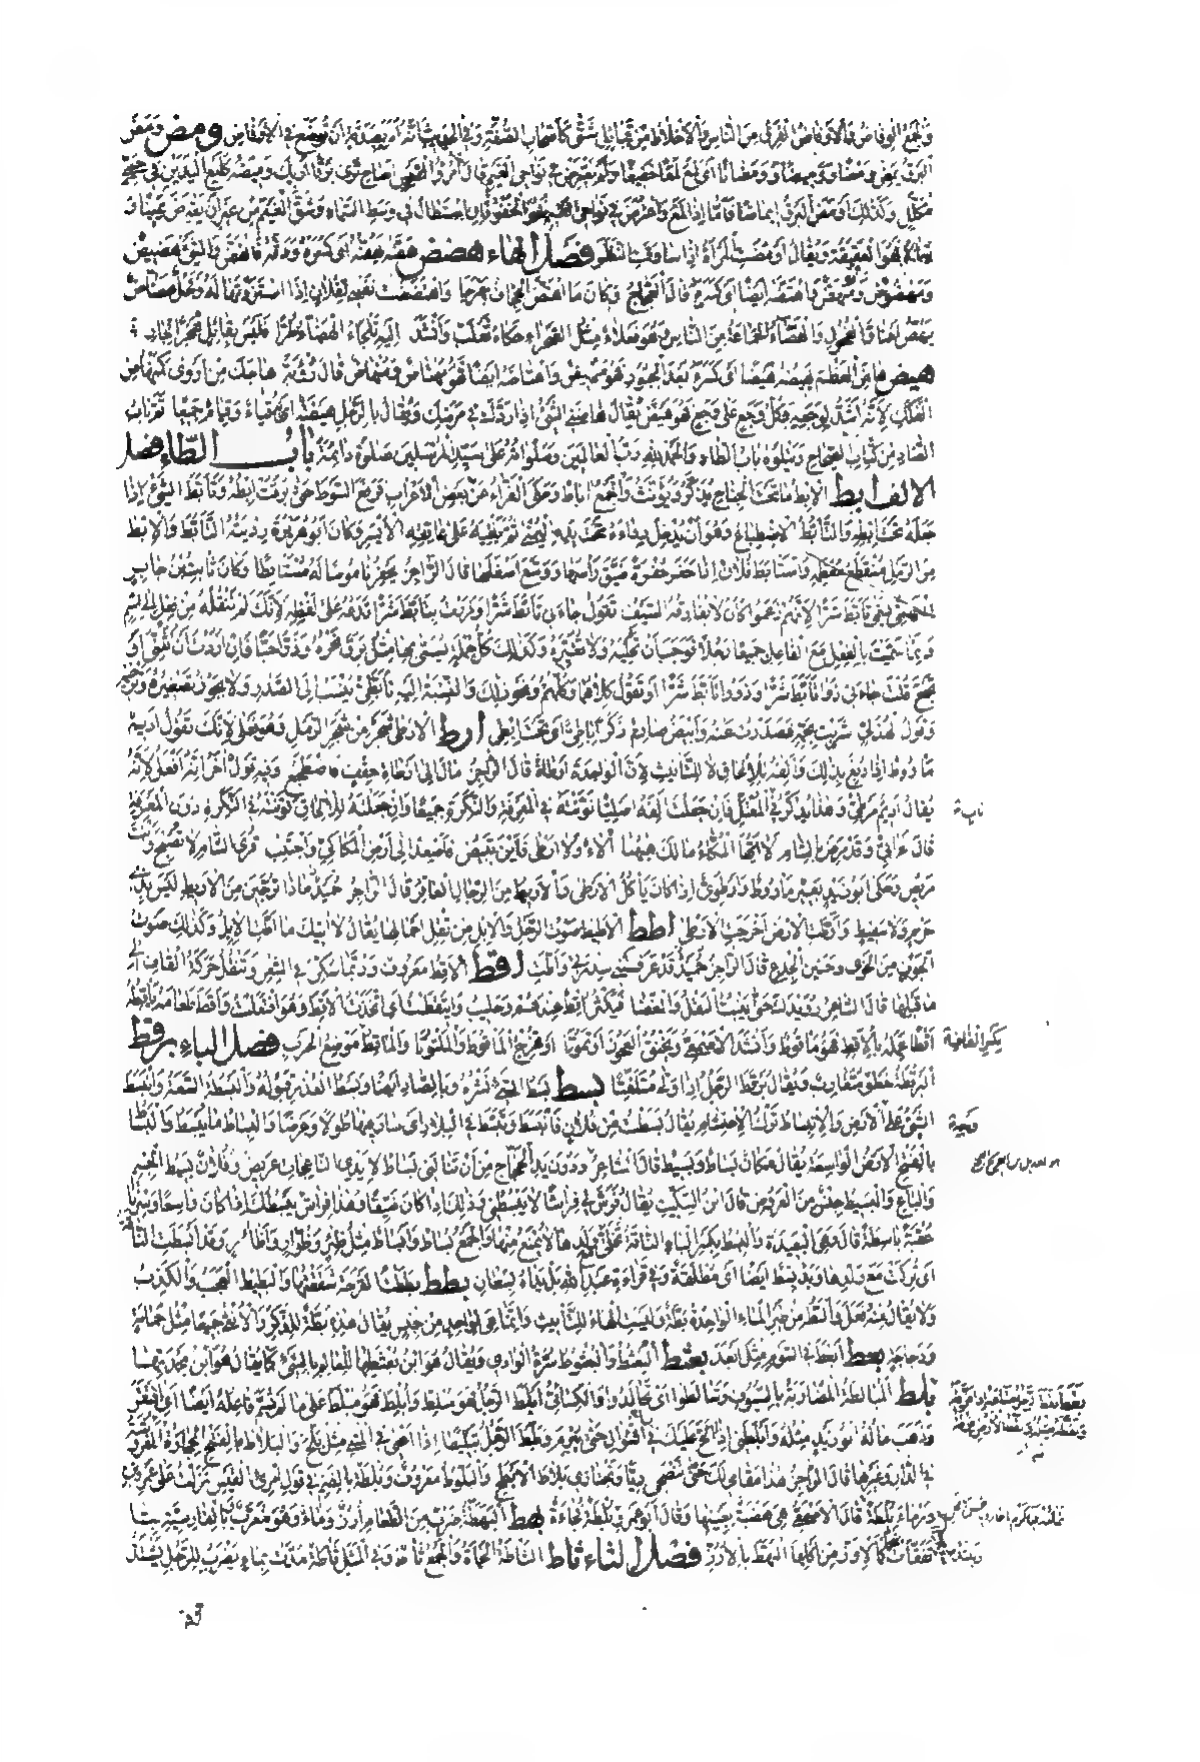 والجمع الوفاض والأوفاض الفرق من الناس والأخلاط من قبائل شتى كأصحاب الصفة وفي الحديث أنه أمر بصدقة أن توضع في الأوفاض ومض ومض
البرق يمض ومضا ووميضا وومضانا أي لمع لمعا خفيفا ولم يعترض في نواحي الغيم قال امرؤ القيس أصاح ترى برقا أريك وميضه كلمع اليدين في حبي
مكلل وكذلك أومض البرق إيماضا فأما إذا لمع واعترض في نواحي الغيم فهو الخفو فإن استطال في وسط السماء وشق الغيم من غير أن يعترض يمينا و
شمالا فهو العقيقة ويقال أومضت المرأة إذا سارقت النظر فصل الهاء هضض هضه هضا أي كسره ودقه فانهض والشيء هضيض
ومهضوض واهتضه أيضا أي كسره قال العجاج وكان ما اهتض الجحاف بهرجا واهتضضت نفسي لفلان إذا استزدتها له وفحل هضاض
يهض أعناق الفحول والهضاء الجماعة من الناس وهو فعلاء مثل الصحراء حكاه ثعلب وأنشد إليه تلجأ الهضاء طرا فليس بقائل هجرا لجادي
هيض هاض العظم يهيضه هيضا أي كسره بعد الجبور فهو مهيض واهتاضه أيضا فهو مهتاض ومنهاض قال رؤبة هاجك من أروى كمنهاض
الفكك لأنه أشد لوجعه وكل وجع على وجع فهو هيض يقال هاضني الشيء إذا ردك في مرضك ويقال بالرجل هيضة أي به قياء وقيام جميعا
الضاد من كتاب الصحاح ويتلوه باب الطاء والحمد لله رب العالمين وصلواته على سيد المرسلين صلوة دائمة باب الطاء فصل
الألف أبط الإبط ما تحت الجناح يذكر ويؤنث والجمع آباط وحكى الفراء عن بعض الأعراب فرفع السوط حتى برقت إبطه وتأبط الشيء إذا
جعله تحت إبطه والتأبط الاضطباع وهو أن يدخل رداءه تحت يده اليمنى ثم يلقيه على عاتقه الأيسر وكان أبو هريرة رديته التأبط والإبط
من الرمل منقطع معظمه واستأبط فلان إذا حفر حفرة ضيق رأسها ووسع أسفلها قال الراجز يحفر ناموسا له مستأبطا وكان ثابت بن جابر
الفهمي يسمى تأبط شرا لأنهم زعموا كان لا يفارقه السيف تقول جاءني تأبط شرا ومررت بتأبط شرا تدعه على لفظه لأنك لم تنقله من فعل إلى اسم
وإنما سميت بالفعل مع الفاعل جميعا رجلا فوجب أن تحكيه ولا تغيره وكذلك كل جملة يسمى بها مثل برق نحره وذرى حبا فإن أردت أن تثني أو
تجمع قلت جاءني ذوا تأبط شرا وذوو تأبط شرا أو تقول كلاهما وكلهم ونحو ذلك والنسبة إليه تأبطي ينسب إلى الصدر ولا يجوز تصغيره وترخيمه
وقول الهذلي شربت بجمه فصدرت عنه وأبيض صارم ذكر إباطي أي تحت إبطي أرط الأرطى شجر من شجر الرمل وهو فعلى لأنك تقول أديم
مأروط إذا دبغ بذلك وألفه للإلحاق لا للتأنيث لأن الواحدة أرطاة قال الراجز مال إلى أرطاة حقف فاضطجع وفيه قول آخر إنه أفعل لأنه
يقال أديم مرطي وهذا يذكر في المعتل فإن جعلت ألفه أصليا نونته في المعرفة والنكرة جميعا وإن جعلته للإلحاق نونته في النكرة دون المعرفة
قال أعرابي وقد مرض بالشام ألا أيها المكاء مالك ههنا ألاء ولا أرطى فأين تبيض فأصعد إلى أرض المكاكي واجتنب قرى الشام لا تصبح وأنت
مريض وحكى أبو زيد بعير مأروط وأرطوي إذا كان يأكل الأرطى والأريط من الرجال العاقر قال الراجز حميد ماذا ترجين من الأريط ليس بذي
حزم ولا سفيط وآرطت الأرض أخرجت الأرطى أطط الأطيط صوت الرحل والإبل من ثقل أحمالها يقال لا آتيك ما أطت الإبل وكذلك صوت
الجوف من الخوى وحنين الجذع قال الراجز حميد قد عرفتني سدرتي وأطت أقط الأقط معروف وربما سكن في الشعر وتنقل حركة القاف إلى
ما قبلها قال الشاعر رويدك حتى ينبت البقل والغضا فيكثر إقط عندهم وحليب وائتقطت أي اتخذت الأقط وهو افتعلت وأقط طعامه يأقطه
أقطا عمله بالأقط فهو مأقوط وأنشد الأصمعي ويخنق العجوز أو تموتا أو تخرج المأقوط والملتوتا والمأقط موضع الحرب فصل الباء برقط
البرقطة خطو متقارب ويقال برقط الرجل إذا ولى متلفتا بسط بسط الشيء نشره وبالصاد أيضا وبسط العذر قبوله والبسطة السعة وانبسط
الشيء على الأرض والانبساط ترك الاحتشام يقال بسطت من فلان فانبسط وتبسط في البلاد أي سار فيها طولا وعرضا والبساط ما يبسط والبساط
بالفتح الأرض الواسعة يقال مكان بساط وبسيط قال الشاعر ودون يد الحجاج من أن تنالني بساط لأيدي الناعجات عريض وفلان بسيط الجسم
والباع والبسيط جنس من العروض قال ابن السكيت يقال فرش لي فراشا لا يبسطني وذلك إذا كان ضيقا وهذا فراش يبسطك إذا كان واسعا وسرنا
عقبة باسطة قال وهي البعيدة والبسط بكسر الباء الناقة تخلى مع ولدها لا يمنع منها والجمع بساط وأبساط مثل ظئر وظؤار وأظآر وقد أبسطت الناقة
أي تركت مع ولدها ويد بسط أيضا أي مطلقة وفي قراءة عبد الله بل يداه بسطان بطط بططت القرحة شققتها والبطيط العجب والكذب
ولا يقال منه فعل والبط من طير الماء الواحدة بطة وليست الهاء للتأنيث وإنما هي لواحد من جنس يقال هذه بطة للذكر والأنثى جميعا مثل حمامة
ودجاجة بعط أبعط في السوم مثل أبعد بعثط البعثط والبعثوط سرة الوادي ويقال هو ابن بعثطها للعالم بالشيء كما يقال هو ابن بجدتها
بلط المبالطة المضاربة بالسيوف وتبالطوا أي تجالدوا والكسائي أبلط الرجل فهو مبلط وأبلط فهو مبلط على ما لم يسم فاعله أيضا أي افتقر
وذهب ماله أبو زيد مثله وأبلطني إذا ألح عليك في السؤال حتى يبرم وبلط الرجل تبليطا إذا أعيا في المشي مثل بلح والبلاط بالفتح الحجارة المفروشة
في الدار وغيرها قال الراجز هذا مقامي لك حتى تنضحي ريا وتجتازي بلاط الأبطح والبلوط معروف وبلطة بالضم في قول امرئ القيس نزلت على عمرو بن
درماء بلطة قال الأصمعي هي هضبة بعينها وقال أبو عمرو بلطة فجاءة بهط البهطة ضرب من الطعام أرز وماء وهو معرب بالفارسية بتا
تفقأت شحما كما الإوز من أكلها البهط بالأرز فصل الثاء ثأط الثأطة الحمأة والجمع ثأط وفي المثل ثأطة مدت بماء يضرب للرجل يشتد